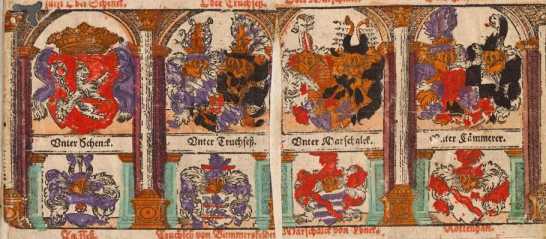 Ober Schenck. Ober Truchseß. Ober Marschalck.
Vnter Schenck. Vnter Truchseß. Vnter Marschalck. Vnter Cämmerer.
Truchseß von Bummersfelden Marschalck von Ebnet. Rottenhan.